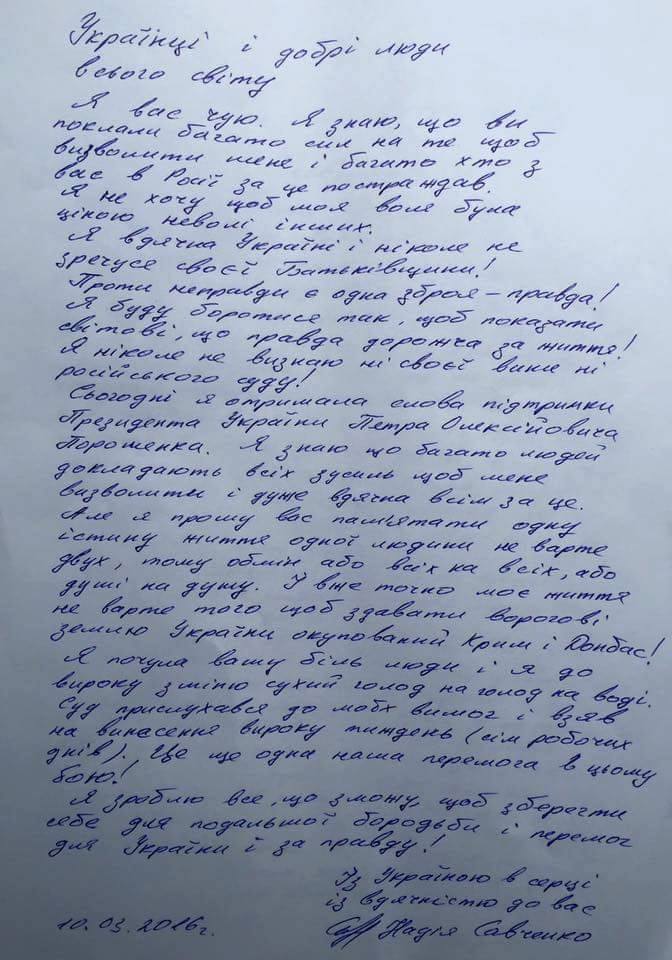 Українці і добрі люди
всього світу
Я вас чую. Я знаю, що ви
поклали багато сил на те щоб
визволити мене і багато хто з
вас в Росії за це постраждав.
Я не хочу щоб моя воля була
ціною неволі інших.
Я вдячна Україні і ніколе не
зречусе своєї Батьківщини!
Проти неправди є одна зброя – правда!
Я буду боротисе так, щоб показати
світові, що правда дорожча за життя!
Я ніколе не визнаю ні своєї вине ні
російського суду!
Сьогодні я отримала слова підтримки
Президента України Петра Олексійовича
Порошенка. Я знаю що багато людей
докладають всіх зусиль щоб мене
визволити і дуже вдячна всім за це.
Але я прошу вас пам'ятати одну
істину життя одної людини не варте
двух, тому обмін або всіх на всіх, або
душі на душу. І вже точно моє життя
не варте того щоб здавати ворогові
землю України окупований Крим і Донбас!
Я почула вашу біль люди і я до
вироку зміню сухий голод на голод на воді.
Суд прислухався до моїх вимог і взяв
на винасення вироку тиждень (сім робочих
днів). Це ще одна наша перемога в цьому
бою!
Я зроблю все, що зможу, щоб зберегти
себе для подальшої бородьби і перемог
для України і за правду!
Із Україною в серці
із вдячністю до вас
Надія Савченко
10.03.2016г.